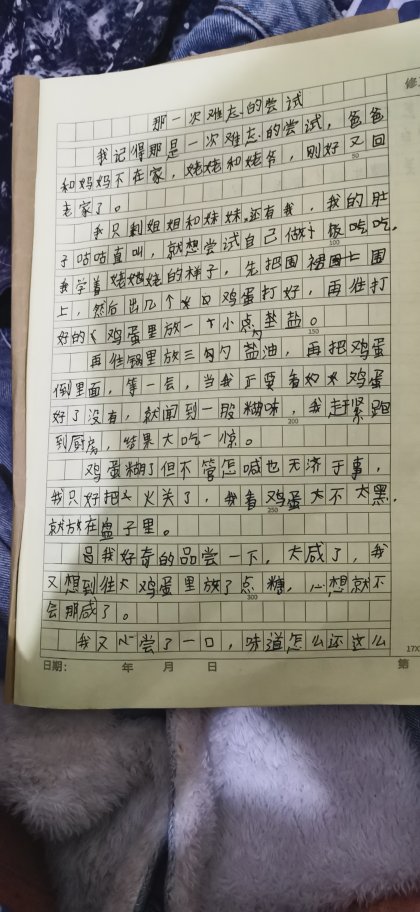 那一次难忘的尝试
我记得那是一次难忘的尝试，爸爸
和妈妈不在家，姥姥和姥爷，刚好又回
老家了。
50
我只剩姐姐和妹妹，还有我，我的肚
子咕咕直叫，就想尝试自己做饭吃吃。
100
我学着姥姥的样子，先把围裙围
上，然后出几个鸡蛋打好，再往打
好的鸡蛋里放一小点盐。
150
再往锅里放三勺盐油，再把鸡蛋
倒里面，等一会，当我正要看鸡蛋
好了没有，就闻到一股糊味，我赶紧跑
200
到厨房，结果大吃一惊。
鸡蛋糊了但不管怎喊也无济于事，
我只好把火关了，我看鸡蛋大不太黑，
250
就放在盘子里。
我好奇的品尝一下，大咸了，我
又想到往鸡蛋里放了点糖，心想就不
300
会那咸了。
我又尝了一口，味道怎么还这么
日期： 年 月 日 第